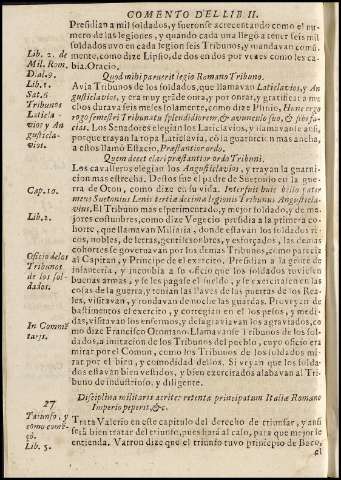 COMENTO DEL LIB II.
Presidian a mil soldados, y fueronse acrecentando como el nu-
mero de las legiones, y quando cada una llegò a tener seis mil
soldados avo en cada legion seis Tribunos, y mandavan comũ-
mente, como dize Lipsio, de dos en dos por veces como les ca-
bia. Oracio,
Lib. 2. de
Mil. Rom.
Dial. 9.
Quod mihi pareret legio Romano Tribuno.
Lib. 1.
Sat. 6
Tribunos
Laticla-
vios y An
gusticla-
vios.
Avia Tribunos de los soldados, que llamavan Laticlavios, y An
gusticlavios, y era muy grãde onra, y por onrar, y gratificar a mu
chos durava seis meses solamente, como dize Plinio, Hunc ergo
rogo semestri Tribunatu splendidiorem, & avunculo suo, & sibi fa-
cias. Los Senadores elegian los Laticlavios, y llamavãse assi,
porque trayan la ropa Laticlavia, cõ la guarnicion mas ancha,
a estos llamò Estacio, Præstantior ordo.
Quem deceat clari præstantior ordo Tribuni.
Los cavalleros elegian los Angusticlavios, y trayan la guarni-
cion mas estrecha. Destos fue el padre de Suetonio en la guer-
ra de Oton, como dize en su vida. Interfuit huic bello pater
meus Suetonius Lenis tertiæ decimæ legionis Tribunus Angusticla-
vius. El Tribuno mas esperimentado, y mejor soldado, y de me-
jores costumbres, como dize Vegecio presidia a la primera co-
horte, que llamavan Miliaria, donde estavan los soldados ri-
cos, nobles, de letras, gentiles ombres, y esforçados, las demas
cohortes se governavan por los demas Tribunos, como parecia
al Capitan, y Principe del exercito. Presidian a la gente de
infanteria, y incumbia a su oficio que los soldados tuviessen
buenas armas, y se les pagasse el sueldo, y se exercitassen en las
cosas de la guerra, y tenian las llaves de las puertas de los Rea-
les, visitavan, y rondavan de noche las guardas. Proveyan de
bastimentos el exercito, y corregian en el los pesos, y medi-
das, visitavan los enfermos, y desagraviavan los agraviados, co
mo dize Francisco Oruntano. Llamavanse Tribunos de los sol-
dados, a imitacion de los Tribunos del pueblo, cuyo oficio era
mirar por el Comun, como los Tribunos de los soldados mi-
rar por el bien, y comodidad dellos. Si veyan que los solda-
dos estavan bien vestidos, y bien exercitados alabavan al Tri-
buno de industrioso, y diligente.
Cap. 10.
Lib. 2.
Oficio de los
Tribunos
de los sol-
dados.
In Commẽ
tarijs.
Disciplina militaris acriter retenta principatum Italiæ Romano
Imperio peperit, &c.
27
Triunfo, y
como come-
çò.
Lib. 5.
Trata Valerio en este capitulo del derecho de triunfar, y ansi
serà bien tratar del triunfo, pues harà al caso, para que mejor le
entienda. Varron dize que el triunfo tuvo principio de Baco,
el